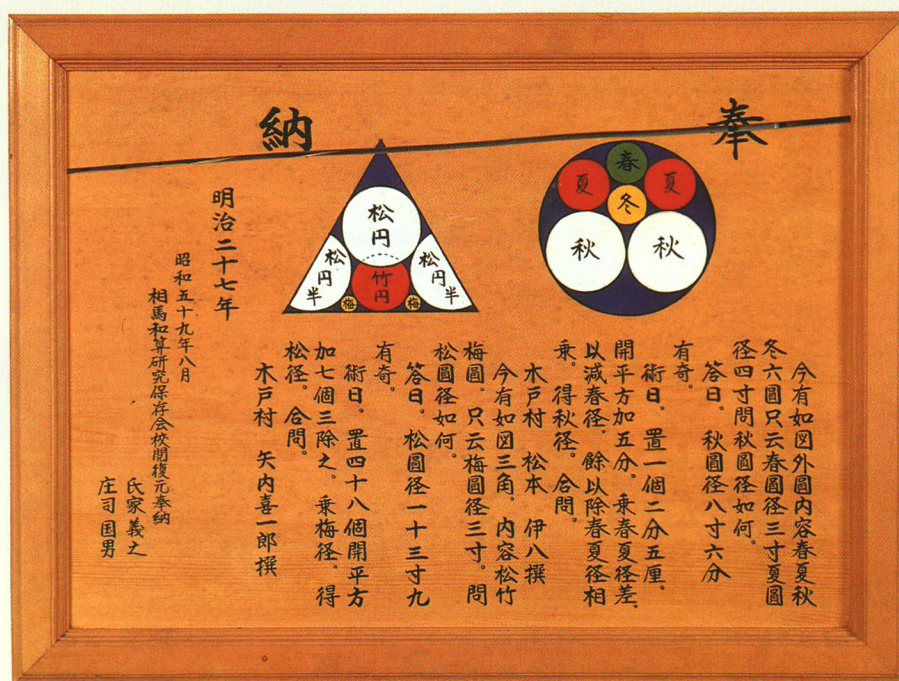 奉納
春
夏
夏
冬
秋
秋
松円
松円半
竹円
松円半
梅
梅
今有如図外圓内容春夏秋
冬六圓只云春圓径三寸夏圓
径四寸問秋圓径如何。
答曰。秋圓径八寸六分
有奇。
術曰。置一個二分五厘。
開平方加五分。乗春夏径差。
以減春径。餘以除春夏径相
乗。得秋径。合問。
木戸村 松本 伊八撰
今有如図三角。内容松竹
梅圓。只云梅圓径三寸。問
松圓径如何。
答曰。松圓径一十三寸九
有奇。
術曰。置四十八個開平方
加七個三除之。乗梅径。得
松径。合問。
木戸村 矢内喜一郎撰
明治二十七年
昭和五十九年八月
相馬和算研究保存会校閲復元奉納
氏家義之
庄司国男